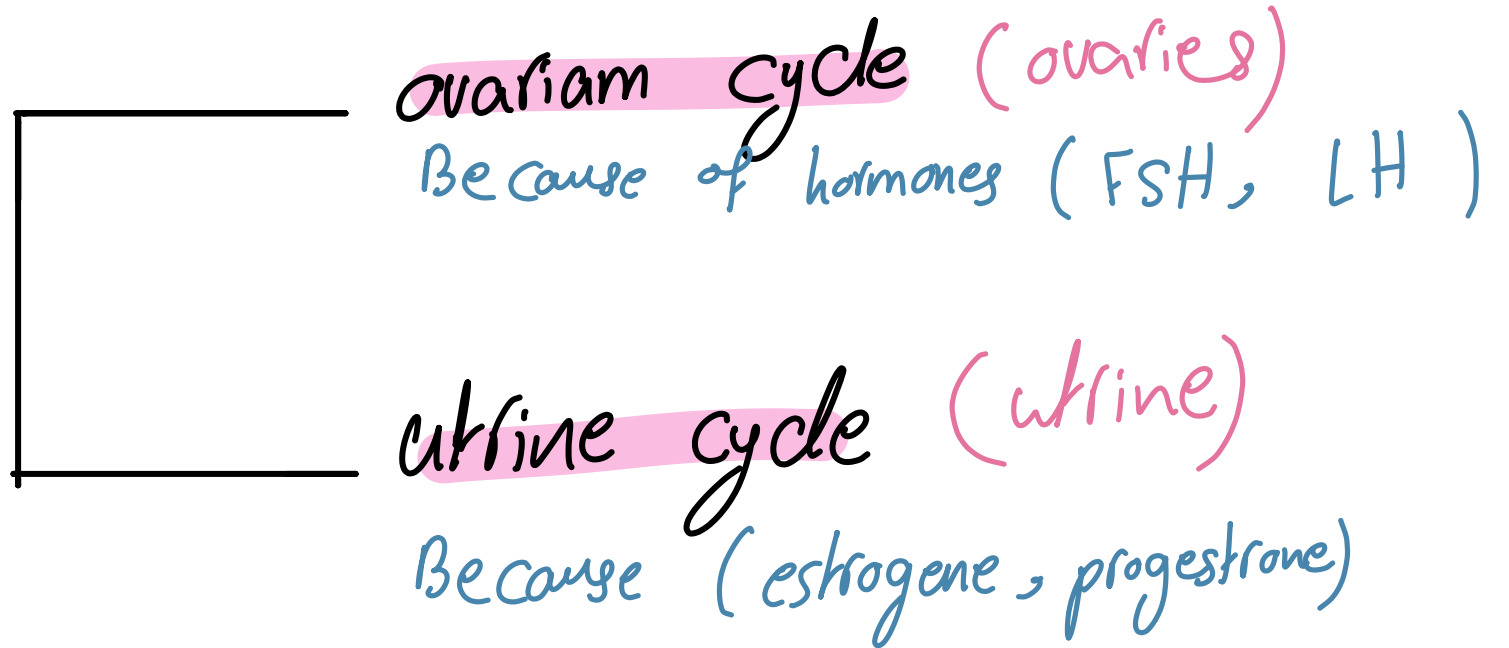 ovariam cycle (ovaries)
Because of hormones (FSH, LH)
utrine cycle (utrine)
Because (estrogene, progestrone)